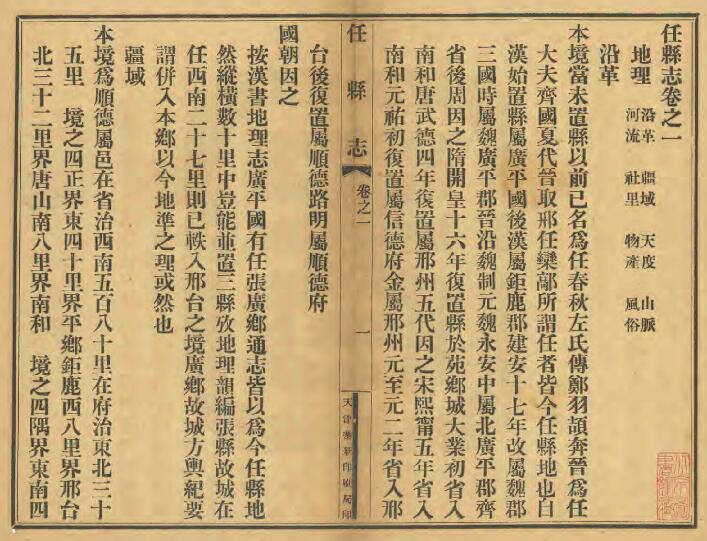 任縣志卷之一
地理 沿革 疆域 天度 山脈
河流 社里 物產 風俗
沿革
本境當未置縣以前已名爲任春秋左氏傳鄭羽頡奔晉爲任
大夫齊國夏代晉取邢任欒鄗所謂任者皆今任縣地也白
漢始置縣屬廣平國後漢屬鉅鹿郡建安十七年改屬魏郡
三國時屬魏廣平郡晉沿魏制元魏永安中屬北廣平郡齊
省後周因之隋開皇十六年復置縣於苑鄉城大業初省入
南和唐武德四年復置屬邢州五代因之宋熙甯五年省入
南和元祐初復置屬信德府金屬邢州元至元二年省入邢
任縣志
卷之一
一
天津業新印刷局印
台後復置屬順德路明屬順德府
國朝因之
按漢書地理志廣平國有任張廣鄉通志皆以爲今任縣地
然縱橫數十里中豈能並置三縣攷地理韻編張縣故城在
任西南二十七里則已軼入邢台之境廣鄉故城方輿紀要
謂併入本鄉以今地準之理或然也
疆域
本境爲順德屬邑在省治西南五百八十里在府治東北三十
五里 境之四正界東四十里界平鄉鉅鹿西八里界邢台
北三十二里界唐山南八里界南和 境之四隅界東南四